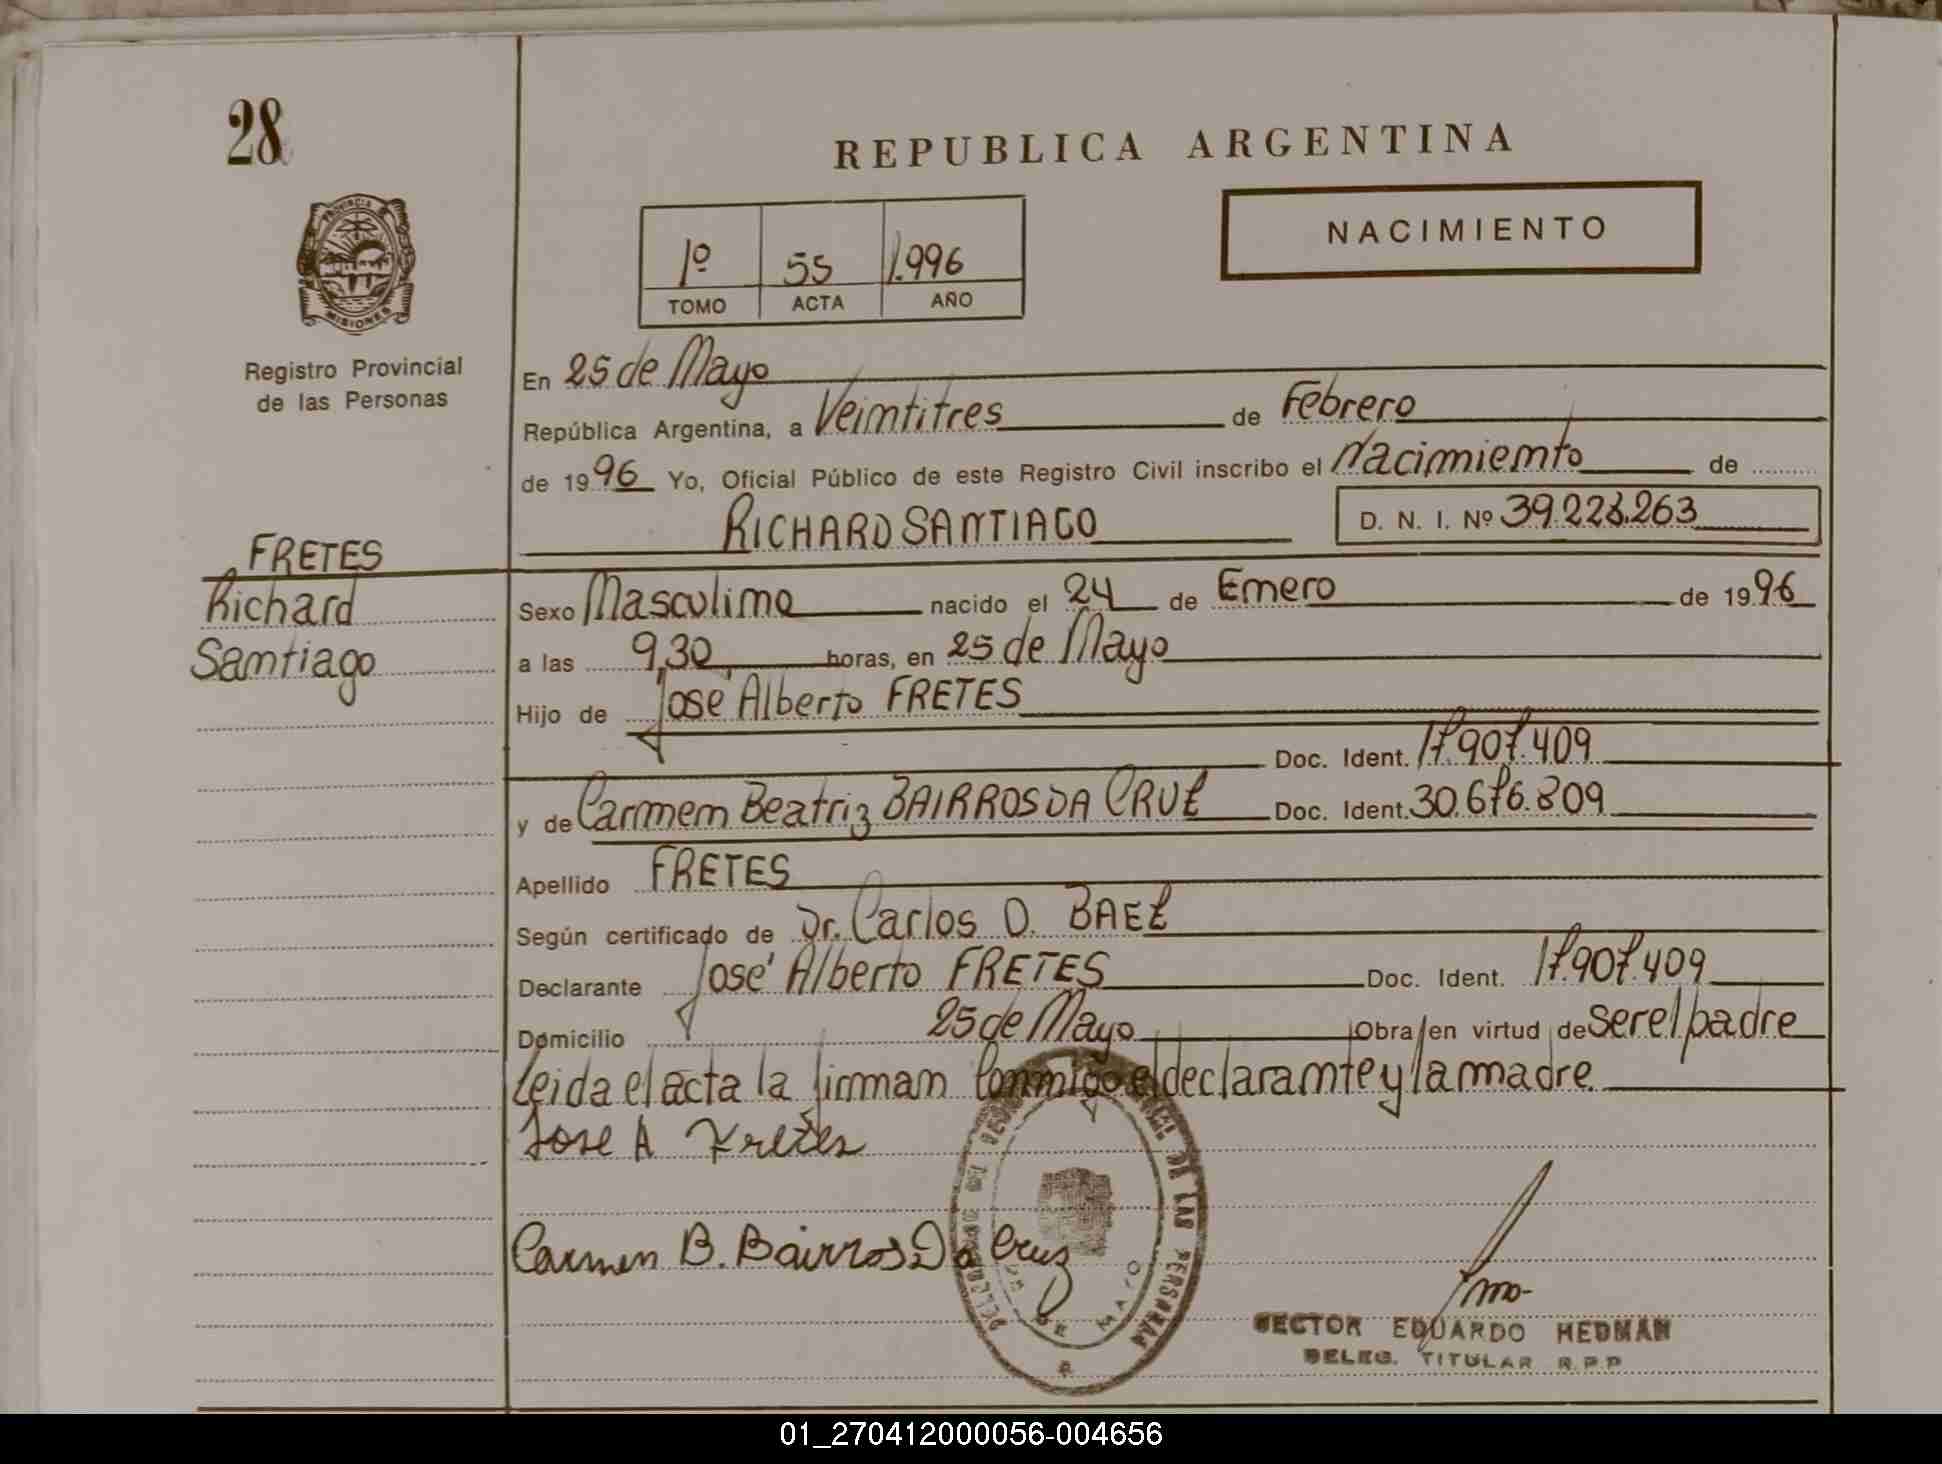 28
REPUBLICA ARGENTINA
NACIMIENTO
1º 55 1.996
TOMO ACTA AÑO
PROVINCIA
MISIONES
Registro Provincial
de las Personas
En 25 de Mayo
República Argentina, a Veintitres de Febrero
de 1996 Yo, Oficial Público de este Registro Civil inscribo el Nacimiento de
RICHARD SANTIAGO D. N. I. Nº
FRETES
Richard
Santiago
Sexo Masculino nacido el 24 de Enero de 1996
a las 9,30 horas, en 25 de Mayo
Hijo de José Alberto FRETES
Doc. Ident. 17.907.409
y de Carmen Beatriz BAIRROS DA CRUZ Doc. Ident. 30.676.809
Apellido FRETES
Según certificado de Dr. Carlos D. BAEZ
Declarante José Alberto FRETES Doc. Ident. 17.907.409
Domicilio 25 de Mayo Obra en virtud de ser el padre
Leida el acta la firman Conmigo el declarante y la madre
Jose A Fretes
Carmen B. Bairros Da Cruz
DE LAS PERSONAS
DE MAYO
HECTOR EDUARDO HEDMAN
DELEG. TITULAR R.P.P
01_270412000056-004656